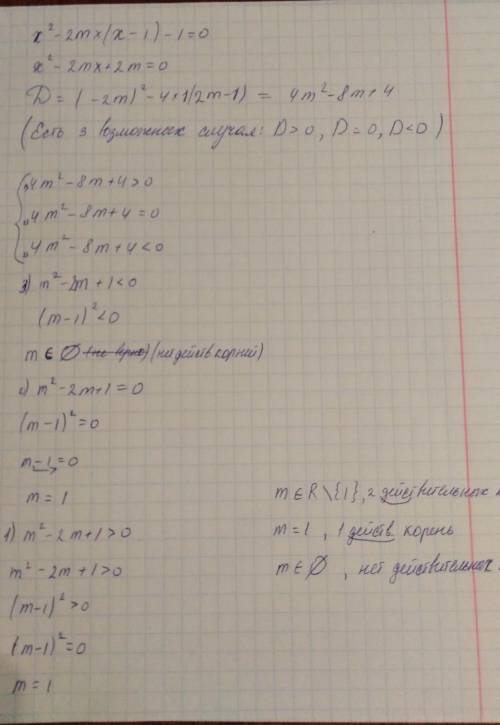 x² - 2m×(x - 1) - 1 = 0
x² - 2mx + 2m = 0
D = (-2m)² - 4×1(2m-1) = 4m² - 8m + 4
(Есть 3 возможных случая: D>0, D=0, D<0)
4m² - 8m + 4 > 0
4m² - 8m + 4 = 0
4m² - 8m + 4 < 0
3) m² - 2m + 1 < 0
(m-1)² < 0
m ∈ ∅ (нет действ корней)
2) m² - 2m + 1 = 0
(m-1)² = 0
m - 1 = 0
m = 1
1) m² - 2m + 1 > 0
m² - 2m + 1 > 0
(m-1)² > 0
(m-1)² = 0
m = 1
m ∈ R \ {1}, 2 действительных
m = 1, 1 действ. корень
m ∈ ∅, нет действительных